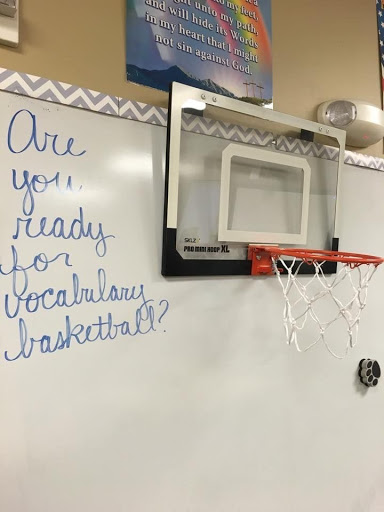 to my feet,
light unto my path,
and will hide its Words
in my heart that I might
not sin against God.
Are
you
ready
for
vocabulary
basketball?
SKLZ
PRO MINI HOOP XL